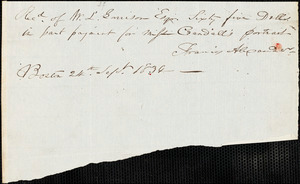 Recd of W. L. Garrison Esqr. Sixty five Dolls
in part payment for Miss Crandall's portrait
Francis Alexander
Boston 24th Sept. 1834